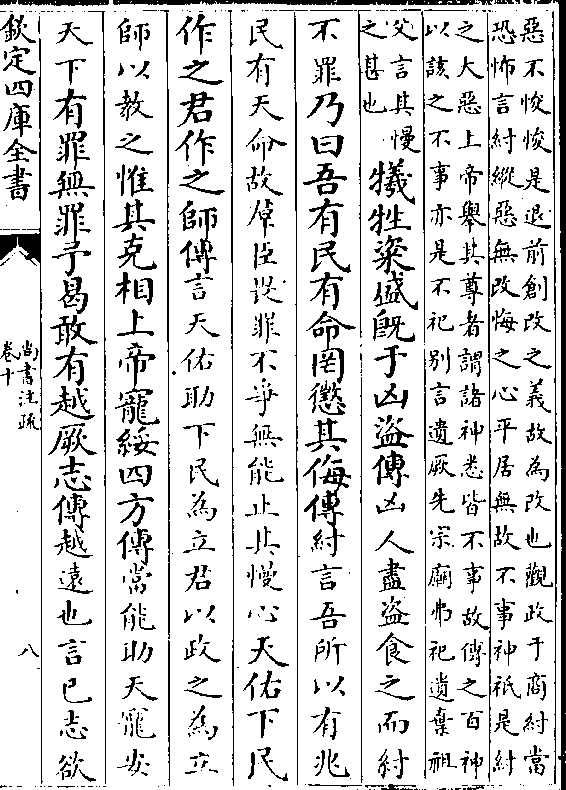 惡不悛悛是退前創改之義故為改也觀政于商紂當
恐怖言紂縱惡無改悔之心平居無故不事神祇是紂
之大惡上帝舉其尊者謂諸神悉皆不事故傳之百神
以該之不事亦是不祀别言遺厥先宗廟弗祀遺棄祖
父言其慢
之甚也
犧牲粢盛既于凶盜傳凶人盡盜食之而紂
不罪乃曰吾有民有命罔懲其侮傳紂言吾所以有兆
民有天命故羣臣畏罪不爭無能止其慢心天佑下民
作之君作之師傳言天佑助下民為立君以政之為立
師以教之惟其克相上帝寵綏四方傳當能助天寵安
天下有罪無罪予曷敢有越厥志傳越遠也言已志欲
欽定四庫全書
尚書注疏
卷十
八